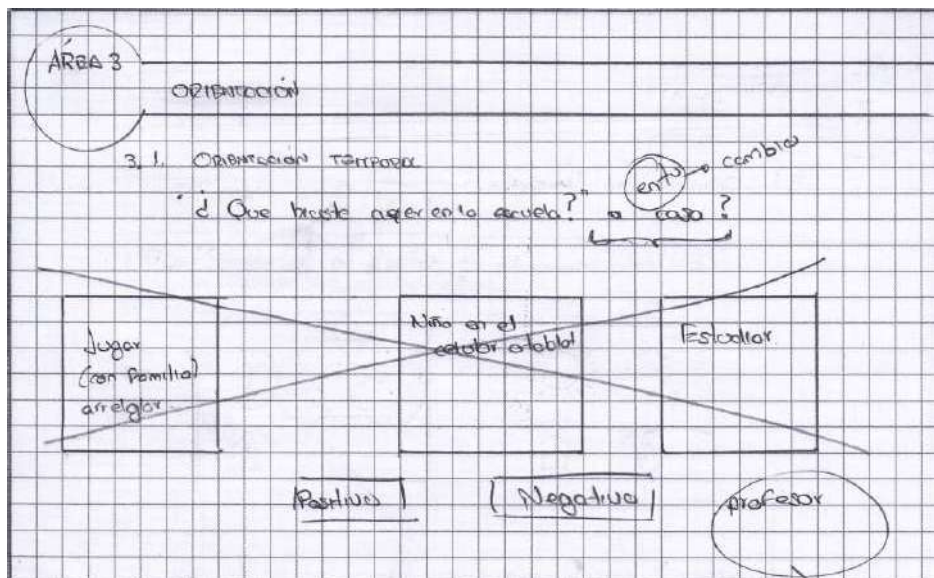 ÁREA 3
ORIENTACIÓN
3.1. ORIENTACIÓN TEMPORAL
en tu → cambio
"¿ Que hiciste ayer en la escuela?" o casa?
Jugar
(con familia)
arreglar
Niño en el
celular o tablet
Estudiar
Positivo
Negativo
profesor